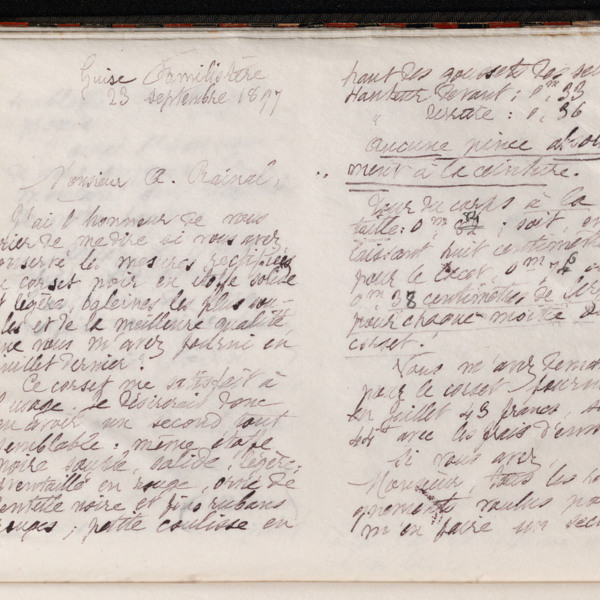 Guise Familistère
23 septembre 1897
Monsieur A. Rainal,
J'ai l'honneur de vous
prier de me dire si vous avez
conservé les mesures rectifiées
du corset noir en étoffe solide
et légère, baleines les plus sou-
ples et de la meilleure qualité,
que vous m'avez fourni en
juillet dernier?
Ce corset me satisfait à
l'usage. Je désirerais donc
en avoir un second tout
semblable: même étoffe
noire souple, solide, légère;
éventaillé en rouge, orné de
dentelle noire et fins rubans
rouges; petite coulisse en
haut des goussets de
Hauteur devant: 0m,33
" derrière: 0,36
Aucune pince absolu
ment à la ceinture.
Tour du corps à la
taille: 0m ; soit, en
laissant huit centimètres
pour le lacet, 0m
0m 38 centimètres de
pour chaque moitié du
corset.
Vous m'avez demandé
pour le corset fourni
en juillet 43 francs,
44 avec les frais d'envoi
Si vous avez,
Monsieur, tous les
gnements voulus pour
m'en faire un second